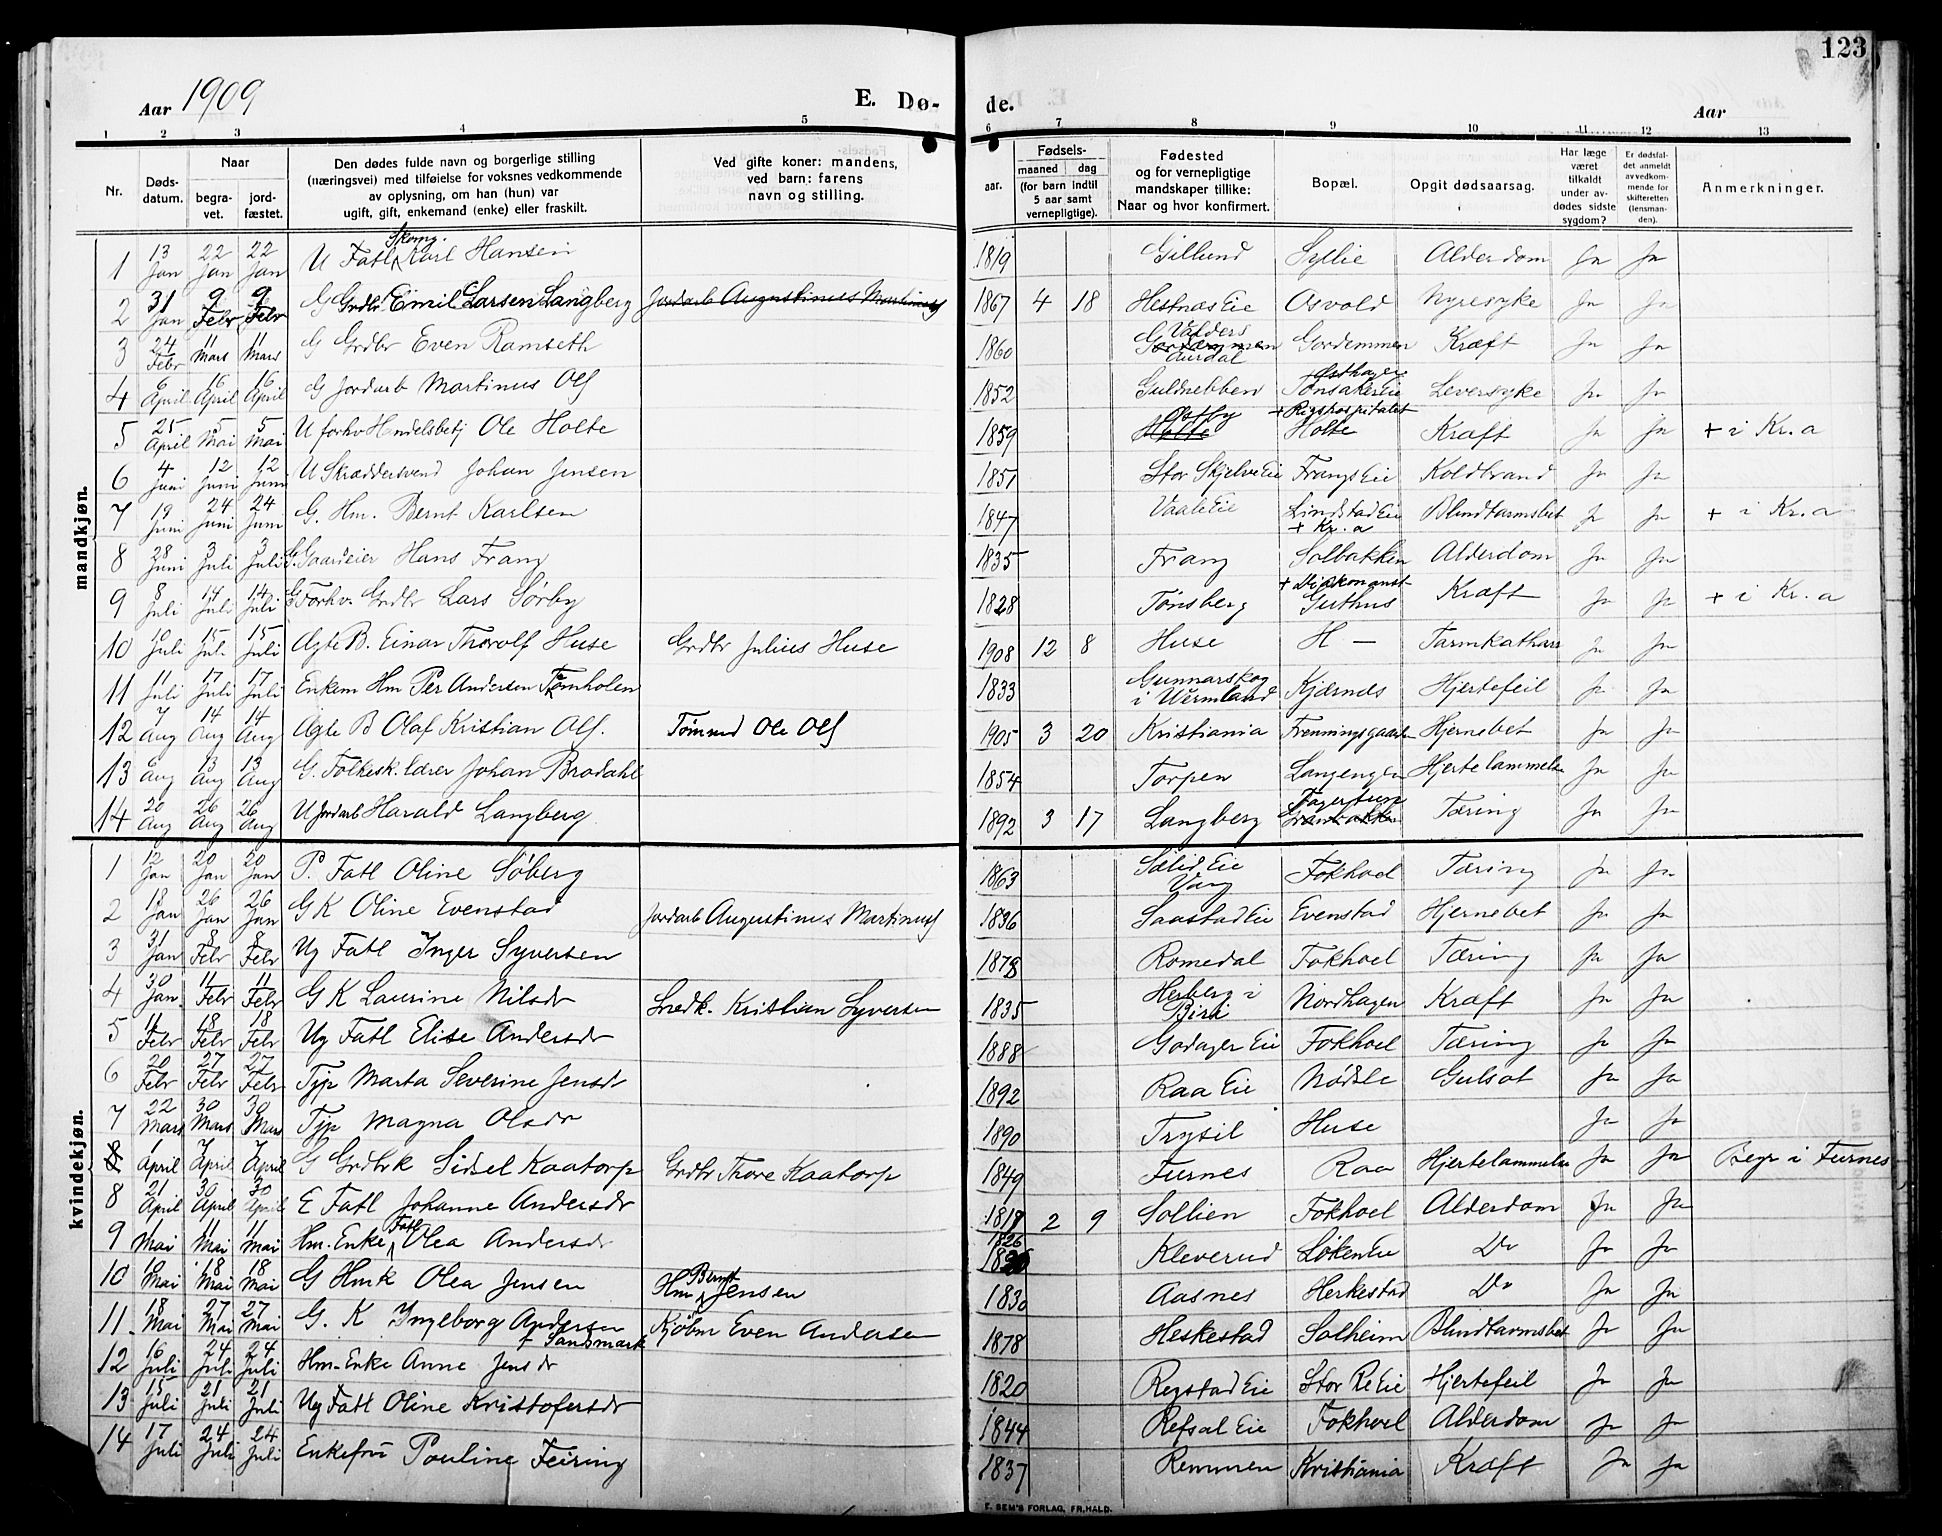 123
Aar 1909
E. Dø- de.
Aar
1 2 3 4 5 6 7 8 9 10 11 12 13
Nr.
Døds-datum.
Naar
begra-vet.
jord-fæstet.
Den dødes fulde navn og borgerlige stilling
(næringsvei) med tilføielse for voksnes vedkommende
av oplysning, om han (hun) var
ugift, gift, enkemand (enke) eller fraskilt.
Ved gifte koner: mandens,
ved barn: farens
navn og stilling.
Fødsels-
aar. maaned dag
(for barn indtil
5 aar samt
vernepligtige).
Fødested
og for vernepligtige
mandskaper tillike:
Naar og hvor konfirmert.
Bopæl.
Opgit dødsaarsag.
Har læge
været
tilkaldt
under av-
dødes sidste
sygdom?
Er dødsfal-
det anmeldt
av vedkom-
mende for
skifteretten
(lensman-
den).
Anmerkninger.
mandkjøn.
1 13 Jan 22 Jan 22 Jan U Fatl Skomg. Karl Hansen 1819 Gillund Syllie Alderdom Ja Ja
2 31 Jan 9 Febr 9 Febr G Grdbr Emil Larsen Langberg Jordarb Augustinus Martinus 1867 4 18 Hestnæs Eie Osvold Nyresyke Ja Ja
3 24 Febr 11 Mars 11 Mars G Grdbr Even Ramseth 1860 Valders Aurdal Gordemmen Kræft Ja Ja
4 6 April 16 April 16 April G Jordarb Martinus Ols 1852 Guldnebben Østhagen Tønsaker Eie Leversyke Ja Ja
5 25 April 5 Mai 5 Mai U forhv Handelsbetj Ole Holte 1859 Holte + Rigshospitalet Holte Kræft Ja Ja + i Kr.a
6 4 Juni 12 Juni 12 Juni U Skræddersvend Johan Jensen 1851 Stor Skjelve Eie Frangs Eie Koldbrand Ja Ja
7 19 Juni 24 Juni 24 Juni G. Hm. Bernt Karlsen 1847 Vaale Eie Lindstad Eie + Kr. a Blindtarmsbet Ja Ja + i Kr. a
8 28 Juni 3 Juli 3 Juli G. Gaardeier Hans Frang 1835 Frang Solbakken Alderdom Ja Ja
9 8 Juli 14 Juli 14 Juli G Forhv. Grdbr Lars Sørby 1828 Tønsberg + Diakonanst Guthus Kræft Ja Ja + i Kr. a
10 10 Juli 15 Juli 15 Juli Ægte B. Einar Thorolf Huse Grdbr Julius Huse 1908 12 8 Huse H — Tarmkatharr Ja Ja
11 11 Juli 17 Juli 17 Juli Enkem Hm Per Andersen Tomholen 1833 Gunnarskog i Wermland Kjærnes Hjertefeil Ja Ja
12 7 Aug 14 Aug 14 Aug Ægte B Olaf Kristian Ols. Tømmd Ole Ols 1905 3 20 Kristiania Frenningsgaarden Hjernebet Ja Ja
13 6 Aug 13 Aug 13 Aug G. Folkesk.lærer Johan Brodahl 1854 Torpen Langenglen Hjertelammelse Ja Ja
14 20 Aug 26 Aug 26 Aug U Jordarb Harald Langberg 1892 3 17 Langberg Fagertun Tæring Ja Ja
kvindekjøn.
1 12 Jan 20 Jan 20 Jan P. Fatl Oline Søberg 1863 Sælid Eie Vang Fokhoel Tæring Ja Ja
2 13 Jan 26 Jan 26 Jan G K Oline Evenstad Jordarb Augustinus Martinus 1836 Saastad Eie Evenstad Hjernebet Ja Ja
3 31 Jan 8 Febr 8 Febr Ug Fatl Inger Syversen 1878 Romedal Fokhoel Tæring Ja Ja
4 30 Jan. 11 Febr 11 Febr G K Laurine Nilsdr Snedk. Kristian Syversen 1835 Herberg i Biri Nordhagen Kræft Ja Ja
5 11 Febr 18 Febr 18 Febr Ug Fatl Elise Andersdr 1888 Godager Eie Fokhoel Tæring Ja Ja
6 20 Febr 27 Febr 27 Febr Typ Marta Severine Jensdr 1892 Raa Eie Nødsle Gulsot Ja Ja
7 22 Mars 30 Mars 30 Mars Typ Magna Olsdr 1890 Trysil Huse Ja Ja
8 1 April 7 April 7 April G Grdbrk Sidsel Kaatorp Grdbr Thore Kaatorp 1849 Furnes Raa Hjertelammelse Ja Ja Begr i Furnes
8 21 April 30 April 30 April E Fatl Johanne Andersdr 1817 2 9 Sollien Fokhoel Alderdom Ja Ja
9 Mai 11 Mai 11 Mai Hm. Enke Fatl Olea Andersdr 1826 Kleverud Løken Eie Do Ja Ja
10 10 Mai 18 Mai 18 Mai G Hmk Olea Jensen Hm Bernt Jensen 1830 Aasnes Herkestad Do Ja Ja
11. 18 Mai 27 Mai 27 Mai G. K Ingeborg Andersen f Sandsmark Kjøbm Even Andersen 1878 Heskestad Solheim Blindtarmsbet Ja Ja
12 16 Juli 24 Juli 24 Juli Hm-Enke Anne Jensdr 1820 Regstad Eie Stor Re Eie Hjertefeil Ja Ja
13 15 Juli 21 Juli 21 Juli Ug Fatl Oline Kristofersdr 1844 Refsal Eie Fokhoel Alderdom Ja Ja
14 17 Juli 24 Juli 24 Juli Enkefru Pauline Feiring 1837 Remmen Kristiania Kræft Ja Ja
E. SEM'S FORLAG, FR.HALD.